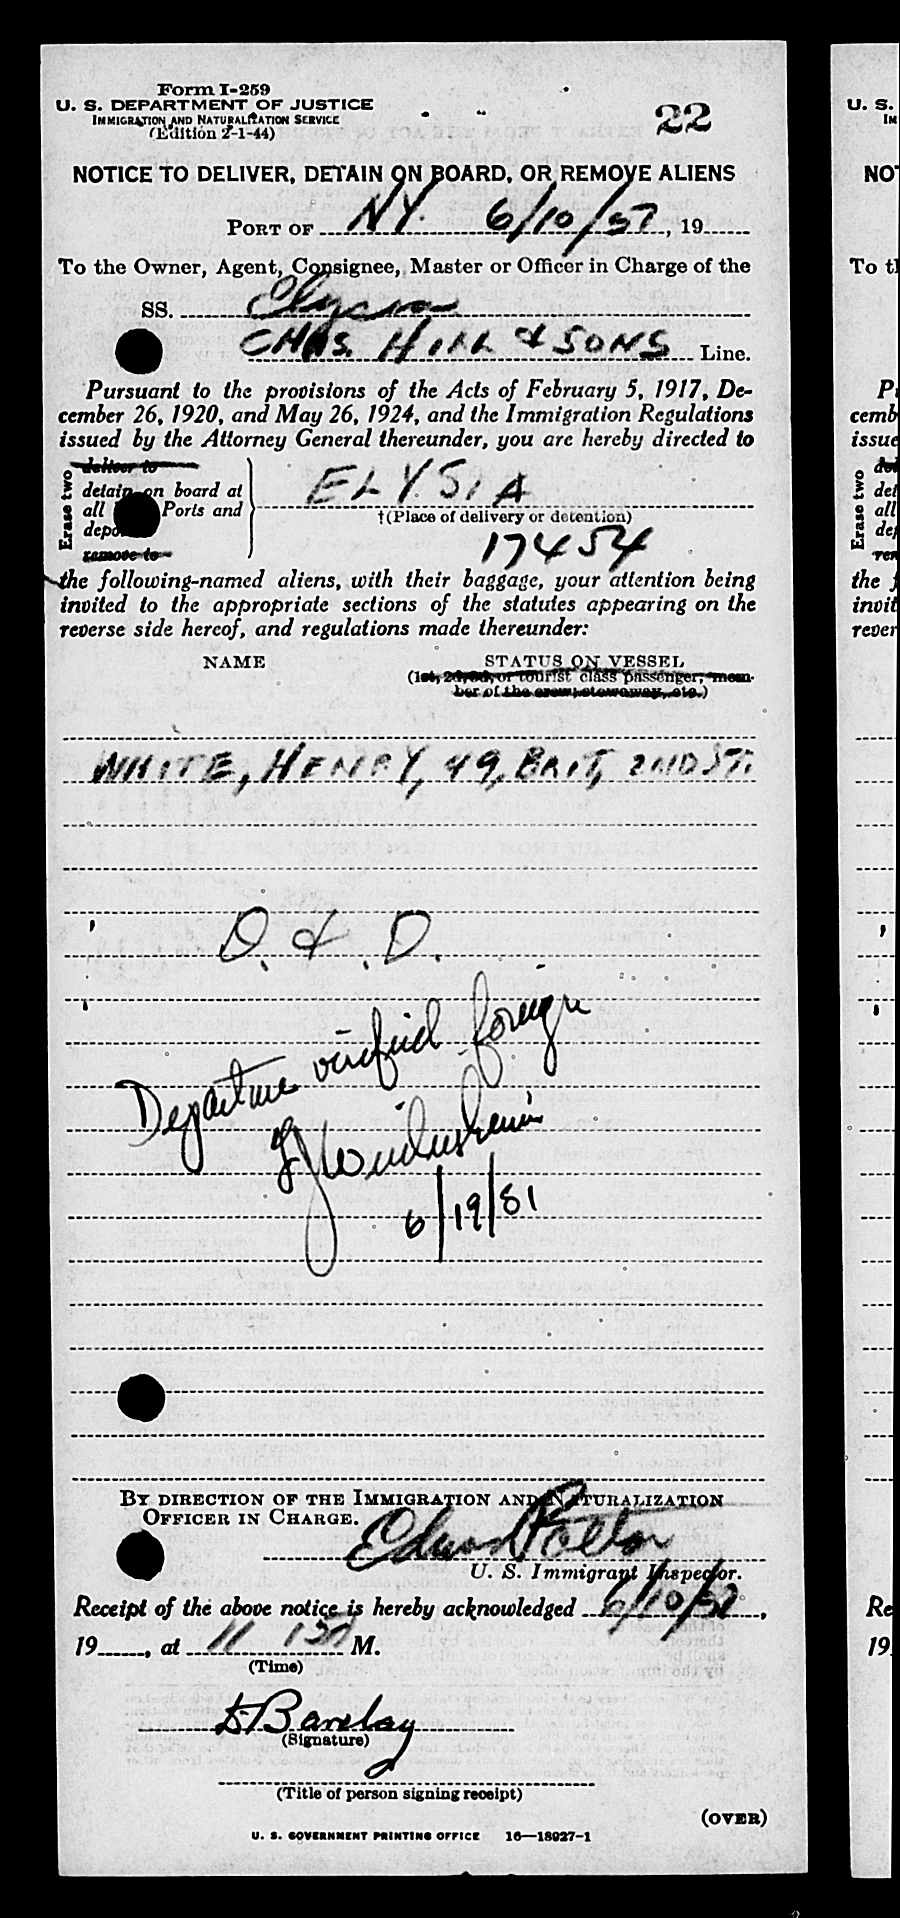 Form I-259
U. S. DEPARTMENT OF JUSTICE
IMMIGRATION AND NATURALIZATION SERVICE
(Edition 2-1-44)
22
NOTICE TO DELIVER, DETAIN ON BOARD, OR REMOVE ALIENS
PORT OF NY. 6/10/57, 19
To the Owner, Agent, Consignee, Master or Officer in Charge of the
SS. Elysia
CHAS. HILL & SONS Line.
Pursuant to the provisions of the Acts of February 5, 1917, De-
cember 26, 1920, and May 26, 1924, and the Immigration Regulations
issued by the Attorney General thereunder, you are hereby directed to
Erase two
deliver to
detain on board at
all Ports and
depo
remove to
ELYSIA
†(Place of delivery or detention)
17454
the following-named aliens, with their baggage, your attention being
invited to the appropriate sections of the statutes appearing on the
reverse side hereof, and regulations made thereunder:
NAME STATUS ON VESSEL
(1st, 2d, 3d, or tourist class passenger, mem-
ber of the crew, stowaway, etc.)
WHITE, HENRY, 49, BRIT, 2ND ST.
D. & D.
Departure verified foreign
6/19/51
BY DIRECTION OF THE IMMIGRATION AND NATURALIZATION
OFFICER IN CHARGE.
U. S. Immigrant Inspector.
Receipt of the above notice is hereby acknowledged 6/10/57,
19, at 11 M.
(Time)
Barclay
(Signature)
(Title of person signing receipt)
(OVER)
U. S. GOVERNMENT PRINTING OFFICE 16—18927-1
U. S.
NOT
To t